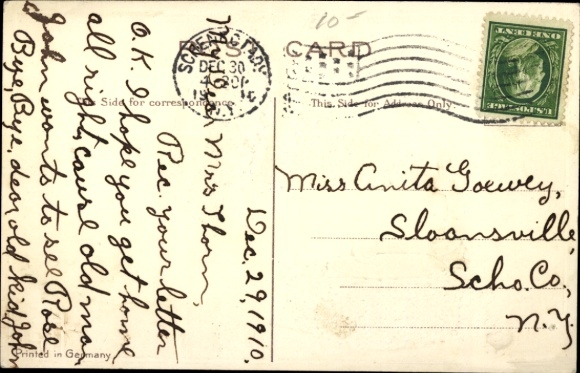 10-
POST CARD
SCHENECTADY
DEC 30
N.Y.
This Side for correspondence
This Side for Address Only.
ONE CENT
U.S. POSTAGE
Dec. 29, 1910.
My Dear Miss Thorn,
Rec. your letter
O.K. I hope you get home
all right, cause old man
John wants to see Rose
Bye, Bye, dear old kid, John
Miss Anita Goewey,
Sloansville,
Scho. Co.,
N.Y.
Printed in Germany